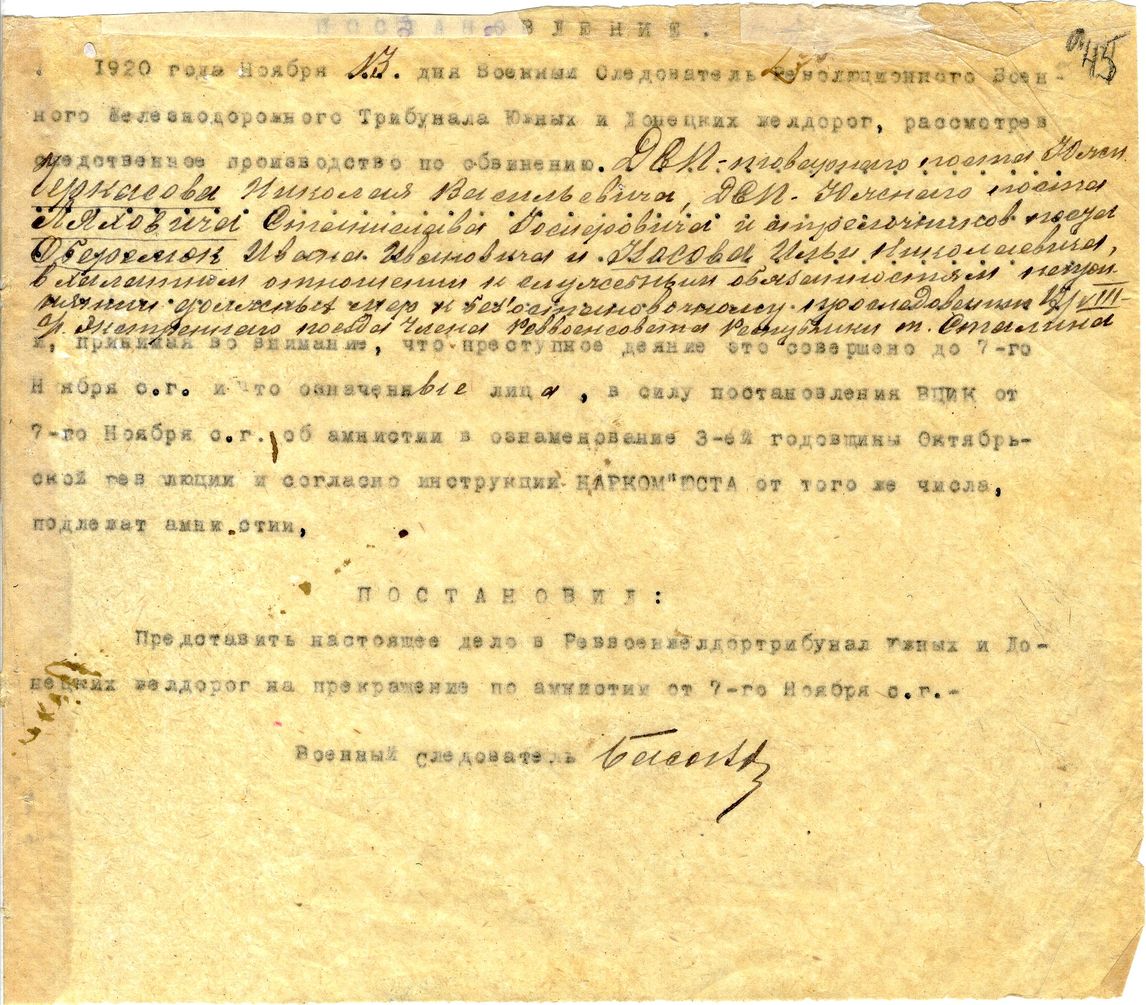 ПОСТАНОВЛЕНИЕ.
45
1920 года Ноября 13. дня Военный Следователь Революционного Воен-
ного Железнодорожного Трибунала Южных и Донецких желдорог, рассмотрев
следственное производство по обвинению. ДСП - товарного поста
Черкасова Николая Васильевича, ДСП - поста
Ляховича Станислава Иосифовича и стрелочников поста
Оберемок Ивана Ивановича и Носова Ильи Николаевича,
в халатном отношении к служебным обязанностям непри-
нятии должных мер к без'остановочному проследованию VIII-
экстренного поезда Члена Реввоенсовета Республики т. Сталина
и, принимая во внимание, что преступное деяние это совершено до 7-го
Ноября с.г. и что означенные лица, в силу постановления ВЦИК от
7-го Ноября с.г. об амнистии в ознаменование 3-ей годовщины Октябрь-
ской революции и согласно инструкции НАРКОМ"ЮСТА от того же числа,
подлежат амнистии,
ПОСТАНОВИЛ:
Представить настоящее дело в Реввоенжелдортрибунал Южных и До-
нецких желдорог на прекращение по амнистии от 7-го Ноября с.г.-
Военный следователь